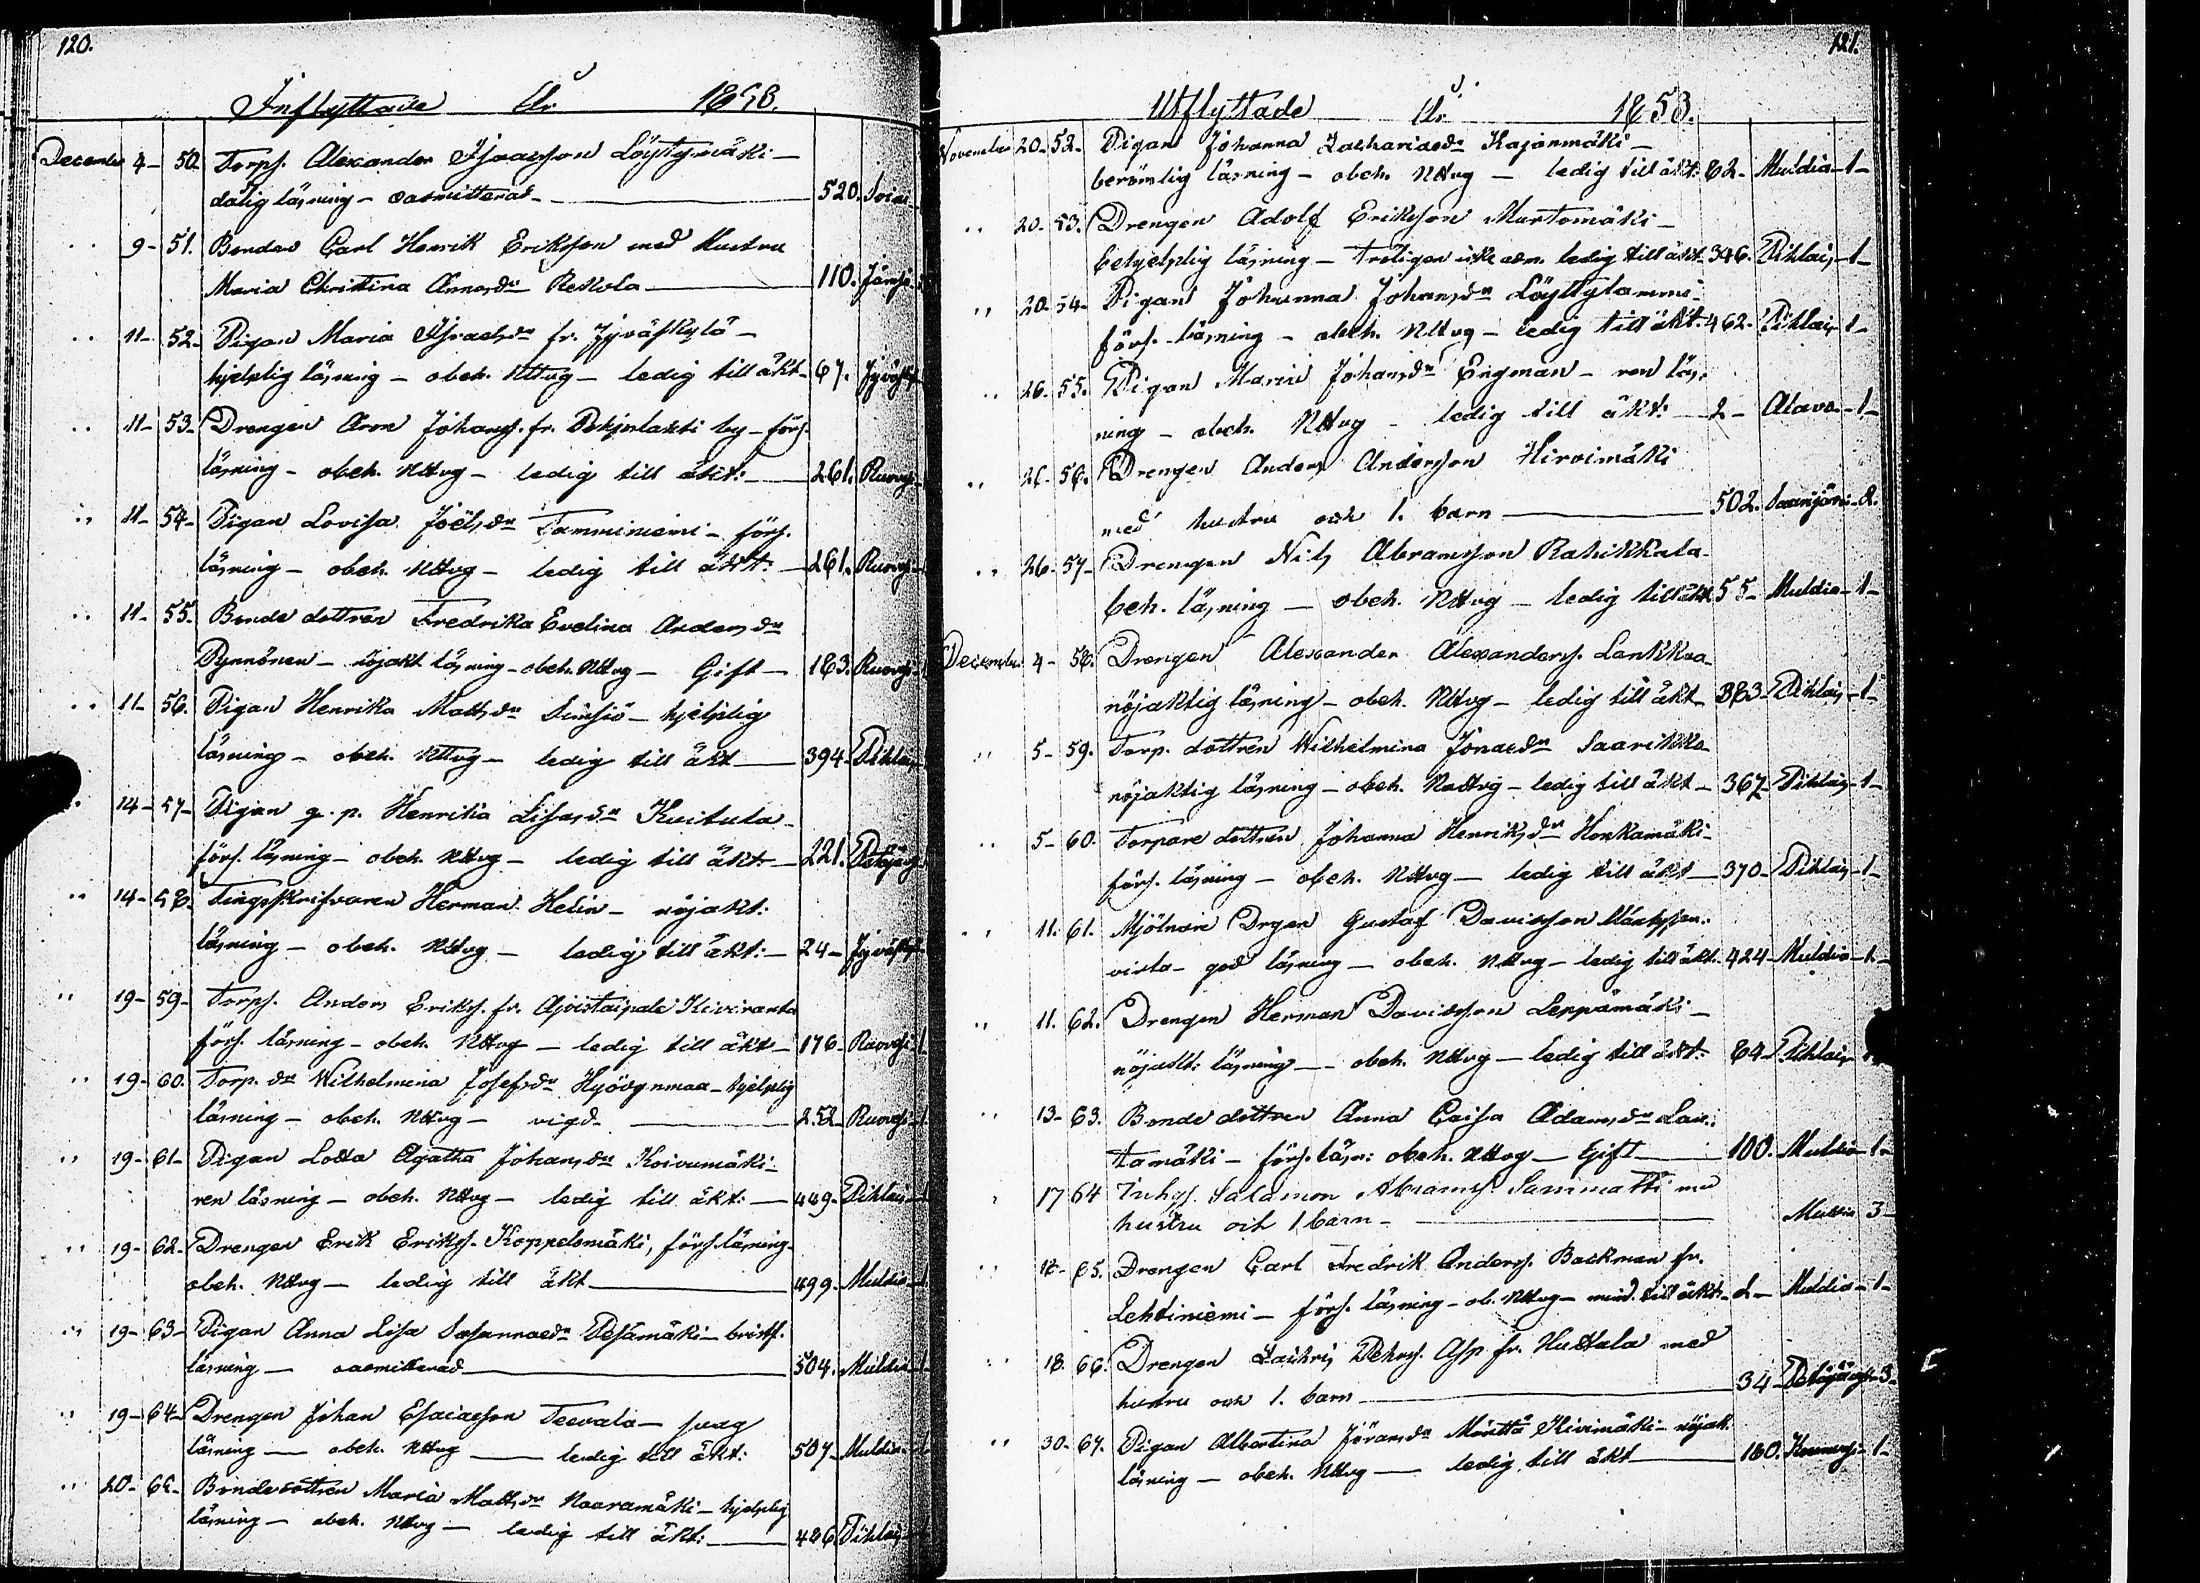 120.
Inflyttade År 1858.
December 4- 50. Torps. Alexander Isaacsson Löytymäki-
dålig läsning - oadmitterad- 520. Soini
9- 51. Bonden Carl Henrik Eriksson med hustru
Maria Christina Annasdr Reskola 110. Jämsä
11- 52. Pigan Maria Israelsdr fr. Jyväskylä -
hjelplig läsning - obeh. Nttvg - ledig till äkt- 67. Jyväsk
11- 53. Drengen Aron Johanss. fr. Pohjoslahti by - förs.
läsning - obeh. Nttvg - ledig till äkt: 261. Ruoves
11- 54- Pigan Lovisa Joelsdr Tamminiemi - förs.
läsning - obeh. Nttvg - ledig till äkt: 261. Ruoves
11- 55- Bonde dottren Fredrika Evelina Andersdr
Pynnönen - nöjakt läsning - obeh. Nttvg - Gift - 183. Ruoves
11- 56. Pigan Henrika Mattsdr Simsiö - hjelplig
läsning - obeh. Nttvg - ledig till äkt 394- Pihlaj
14- 57- Pigan q. p. Henrika Lisasdr Kuitula-
förs. läsning - obeh. Nttvg - ledig till äkt: 221. Petäjäv
14- 58. Tingsskrifvaren Herman Helin - nöjakt:
läsning - obeh. Nttvg - ledig till äkt: 24- Jyväsk
19- 59- Torps. Anders Erikss. fr. Ajostaipale Kiviranta
förs. läsning - obeh. Nttvg - ledig till äkt- 176- Ruoves 1
19- 60. Torp. dr Wilhelmina Josefsdr Hyövynmaa - hjelplig
läsning - obeh. Nttvg - vigd- 252- Ruoves 1
19- 61- Pigan Lotta Agatha Johansdr Koivumäki-
ren läsning - obeh. Nttvg - ledig till äkt: 449- Pihlaj 1
19- 62- Drengen Erik Erikss. Koppelomäki, förs. läsning-
obeh. Nttvg - ledig till äkt 499- Muldia 1
19- 63- Pigan Anna Lisa Susannaedr Pesämäki - bristf.
läsning - oadmitterad 504. Muldia 1
19- 64- Drengen Johan Esaiasson Teevala - svag
läsning - obeh. Nttvg - ledig till äkt: 507- Muldia 1
20- 65- Bondedottren Maria Mattsdr Naaramäki - hjelplig
läsning - obeh. Nttvg - ledig till äkt: 486 Pihlaj
121.
Utflyttade År 1858.
November 20- 52- Pigan Johanna Zachariaedr Kajanmäki -
berömlig läsning - obeh. Nttvg - ledig till äkt: 82- Muldia - 1 -
20- 53. Drengen Adolf Eriksson Murtomäki -
behjelplig läsning - troligen icke adm. ledig till äkt 346. Pihlaj - 1 -
20- 54- Pigan Johanna Johansdr Löyttylammi-
förs. läsning - obeh. Nttvg - ledig till äkt. 462. Pihlaj 1 -
26- 55. Pigan Maria Johansdr Engman - ren läs-
ning - obeh. Nttvg - ledig till äkt: 2 - Alavo - 1 -
26- 56. Drengen Anders Andersson Hirvimäki
med hustru och 1. barn 502. Saarijärvi - 2.
26- 57- Drengen Nils Abramsson Rahikkala-
beh. läsning - obeh. Nttvg - ledig till äkt 55- Muldia - 1 -
December 4- 58. Drengen Alexander Alexanderss. Lankkaa-
nöjaktig läsning - obeh. Nttvg - ledig till äkt- 383- Pihlaj - 1 -
5- 59. Torp. dottren Wilhelmina Jonaedr Saarikko-
nöjaktig läsning - obeh. Nattvg - ledig till äkt - 367- Pihlaj - 1 -
5- 60. Torpare dottren Johanna Henriksdr Honkamäki-
förs. läsning - obeh. Nttvg - ledig till äkt - 370- Pihlaj - 1 -
11. 61. Mjölnare Drgen Gustaf Davidsson
god läsning - obeh. Nttvg - ledig till äkt. 424- Muldia - 1 -
11. 62. Drengen Herman Davidsson Leppämäki -
nöjakt: läsning - obeh. Nttvg - ledig till äkt: 84- Pihlaj -
13- 63. Bonde dottren Anna Caisa Adamsdr Lau-
tamäki - förs. läsn: obeh. Nttvg - Gift 100. Muldia - 1 -
17 64 Inhys. Salamon Abramss. Sammatti med
hustru och 1 barn - Muldia 3
18- 65. Drengen Carl Fredrik Anderss. Backman fr.
Lehtiniemi - förs. läsning - ob. Nttvg - till äkt- 2 - Muldia - 1 -
18. 66. Drengen Zachris Asp fr. Huttula med
hustru och 1. barn 34- Petäjäv 3 -
30- 67. Pigan Albertina Göransdr Kivimäki - nöjak.
läsning - obeh. Nttvg - ledig till äkt 180. - 1 -